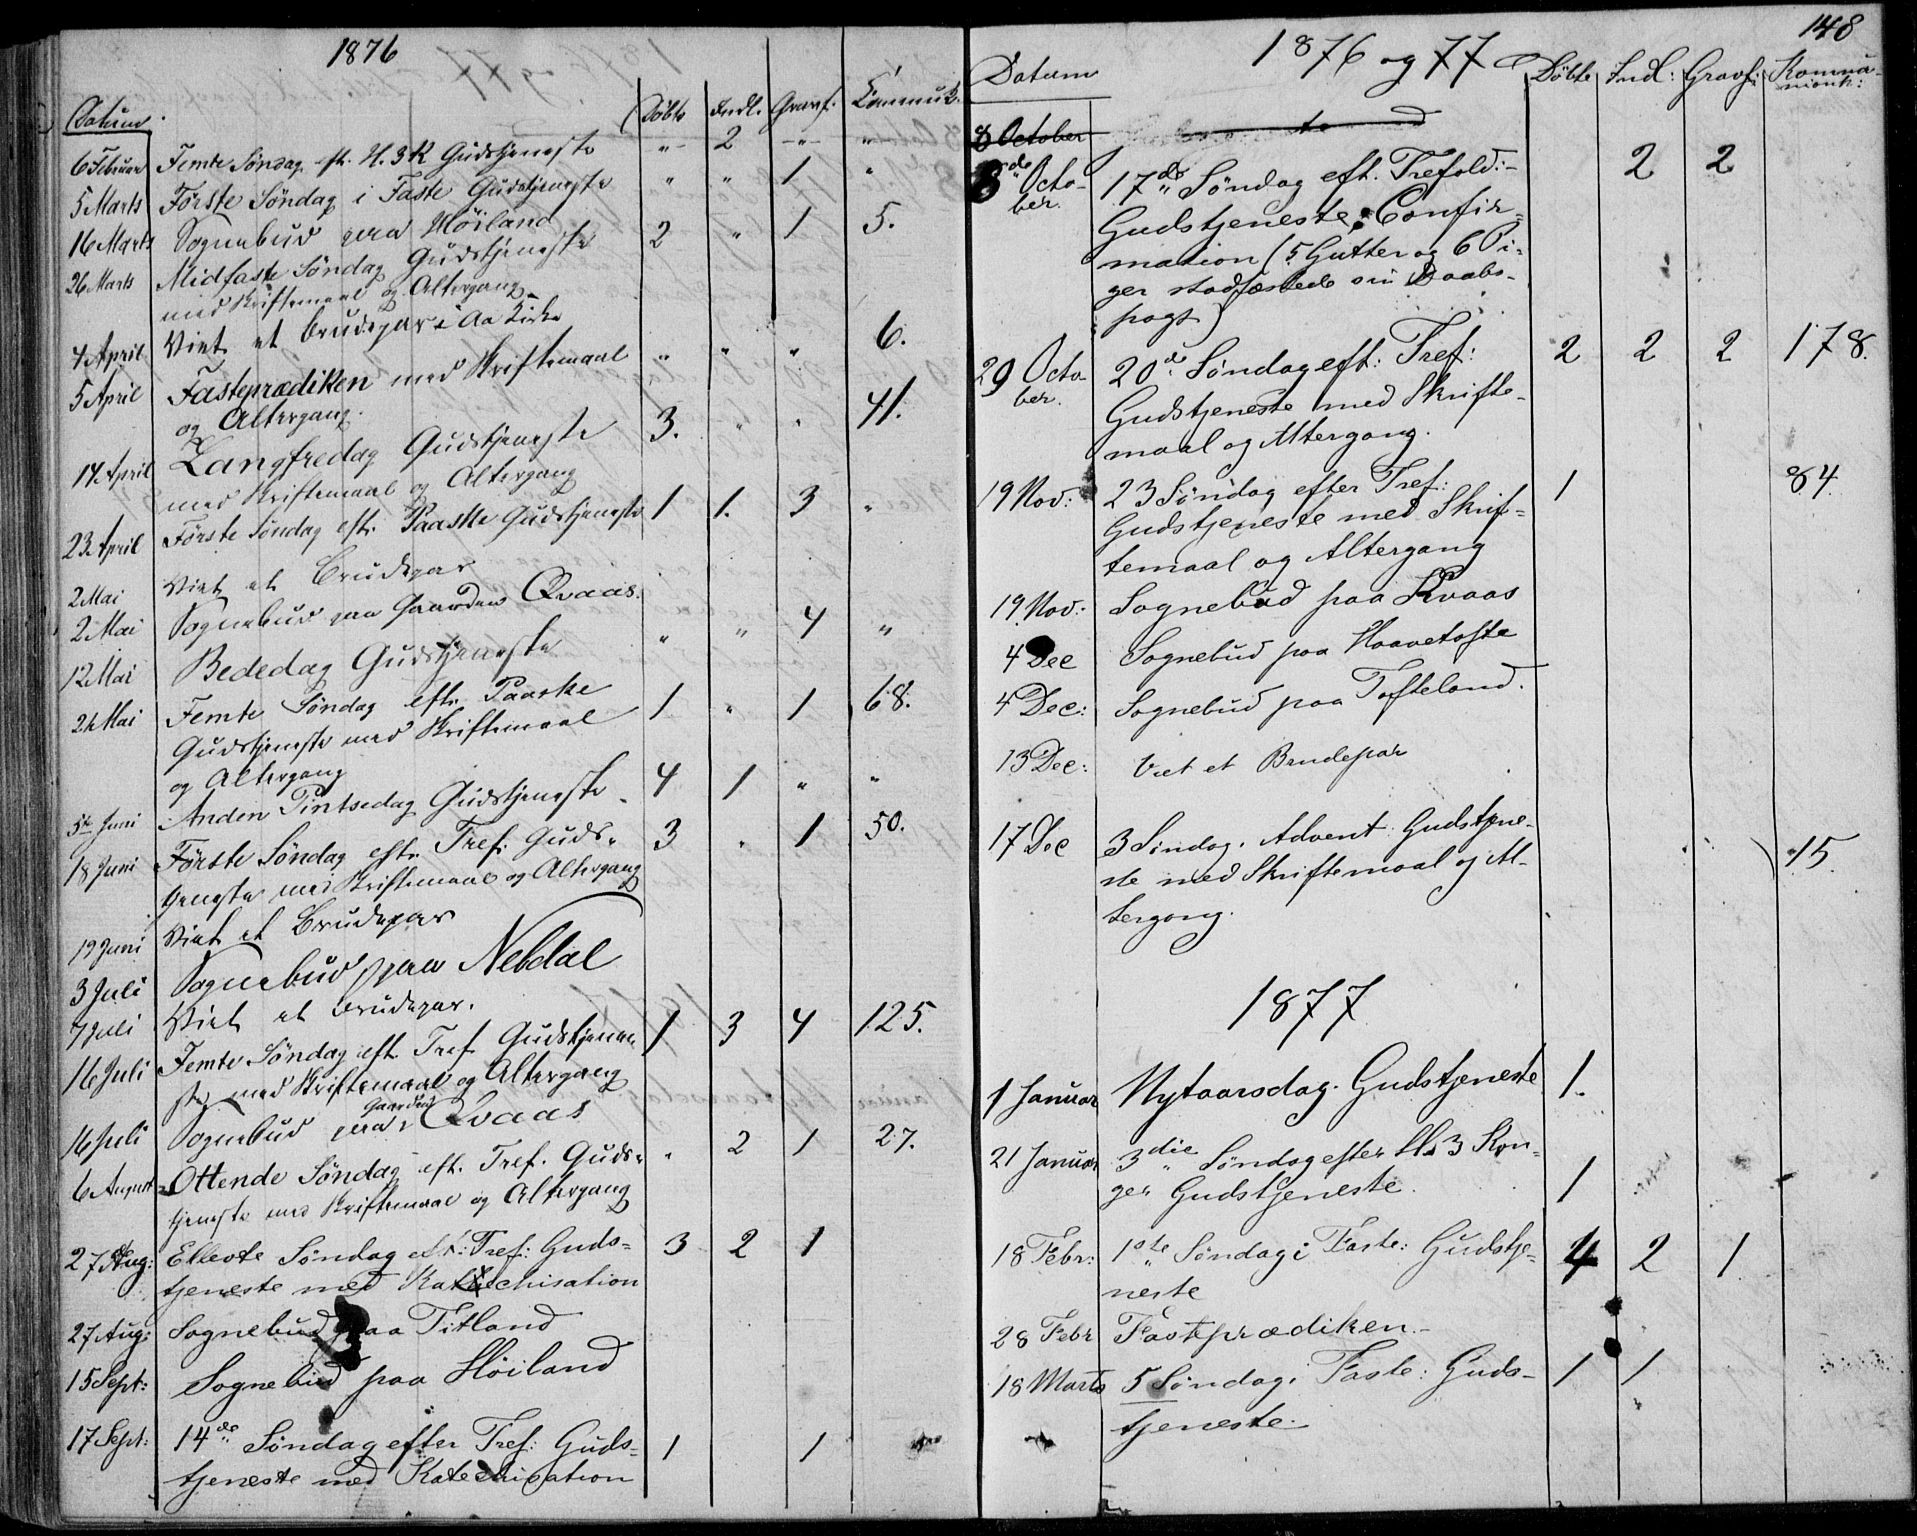 1876
Datum. Døbte Indl. Gravf. Communik.
6 Februar Femte Søndag eft. H. 3 K Gudstjeneste " 2 " "
5 Marts Første Søndag i Faste Gudstjeneste " " 1 "
16 Marts Sognebud paa Høiland
26 Marts Midfaste Søndag Gudstjeneste 2 " 1 5.
med Skriftemaal og Altergang
4 April Viet et Brudepar i Aa Kirke
5 April Fasteprædiken med Skriftemaal " " " 6.
og Altergang.
14 April Langfredag Gudstjeneste 3. " " 41.
med Skriftemaal og Altergang
23 April Første Søndag eft. Paaske Gudstjeneste 1 1. 3 "
2 Mai Viet et Brudepar
2 Mai Sognebud paa Gaarden Qvaas.
12 Mai Bededag Gudstjeneste " " 4 "
21 Mai Femte Søndag eft. Paaske 1 " 1 68.
Gudstjeneste med Skriftemaal
og Altergang
5te Juni Anden Pintsedag Gudstjeneste 4 1 " "
18 Juni Første Søndag eft. Tref. Guds- 3 " 1 50.
tjeneste med Skriftemaal og Altergang
19 Juni Viet et Brudepar
3 Juli Sognebud paa Nebdal
7 Juli Viet et Brudepar.
16 Juli Femte Søndag eft. Tref. Gudstjene- 1 3 4 125.
ste med Skriftemaal og Altergang
16 Juli Sognebud paa Gaarden Qvaas
6 August Ottende Søndag eft. Tref. Guds- " 2 1 27.
tjeneste med Skriftemaal og Altergang
27 Aug: Ellevte Søndag eft: Tref: Guds= 3 2 1
tjeneste med Katechisation
27 Aug: Sognebud paa Titland
15 Sept: Sognebud paa Høiland
17 Sept: 14de Søndag efter Tref: Guds= 1 1
tjeneste med Katechisation
148
1876 og 77
Datum Døbte Indl: Gravf: Kommu-
nionk:
8 October
8de Octo- 17de Søndag eft. Trefold:- 2 2
ber. Gudstjeneste; Confir=
mation (5 Gutter og 6 Pi-
ger stadfæstede sin Daabs-
pagt)
29 Octo- 20de Søndag eft: Tref: 2 2 2 178.
ber. Gudstjeneste med Skrifte-
maal og Altergang.
19 Nov: 23 Søndag efter Tref: 1 84.
Gudstjeneste med Skrif=
temaal og Altergang
19 Nov: Sognebud paa Kvaas
4 Dec Sognebud paa Haavetofte
4 Dec: Sognebud paa Tofteland.
13 Dec: Viet et Brudepar
17 Dec 3 Søndag i Advent Gudstjene- 15.
ste med Skriftemaal og Al-
tergang.
1877
1 Januar Nytaarsdag. Gudstjeneste 1.
21 Januar 3die Søndag efter H. 3 Kon-
ger Gudstjeneste. 1
18 Febr: 1ste Søndag i Faste: Gudstje- 4 2 1.
neste
28 Febr Fasteprædiken.-
18 Marts 5 Søndag i Faste: Guds- 1 1
tjeneste.-